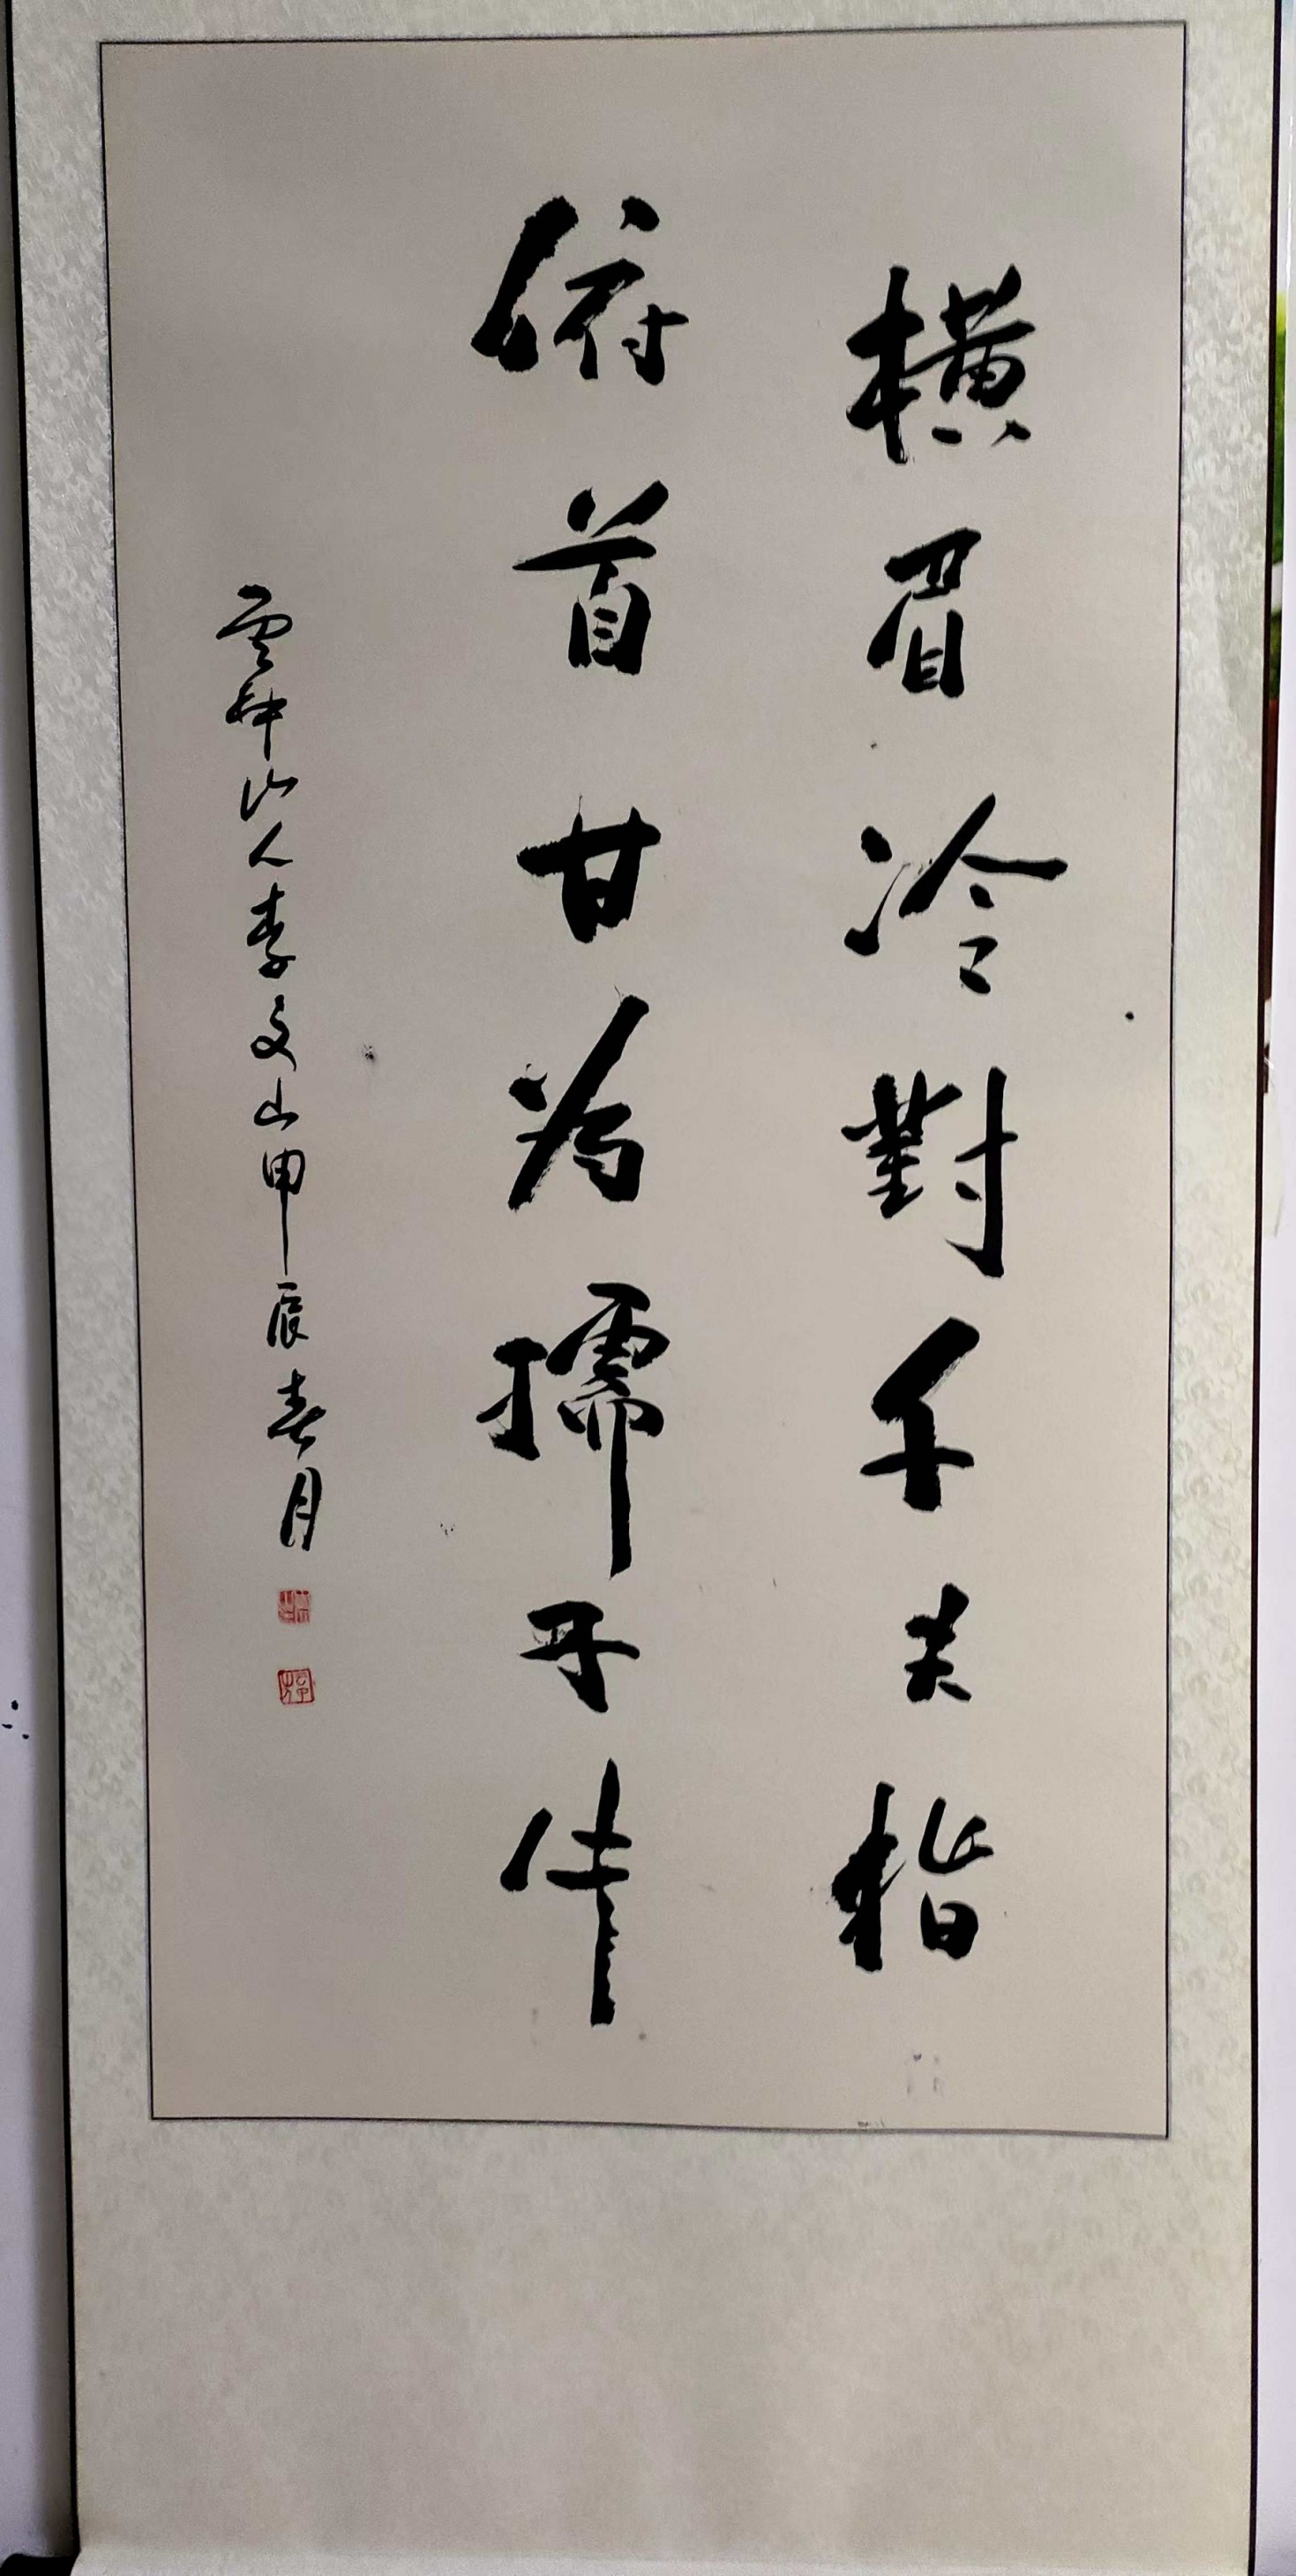 横眉冷對千夫指
俯首甘为孺子牛
雲山人李文山甲辰春月